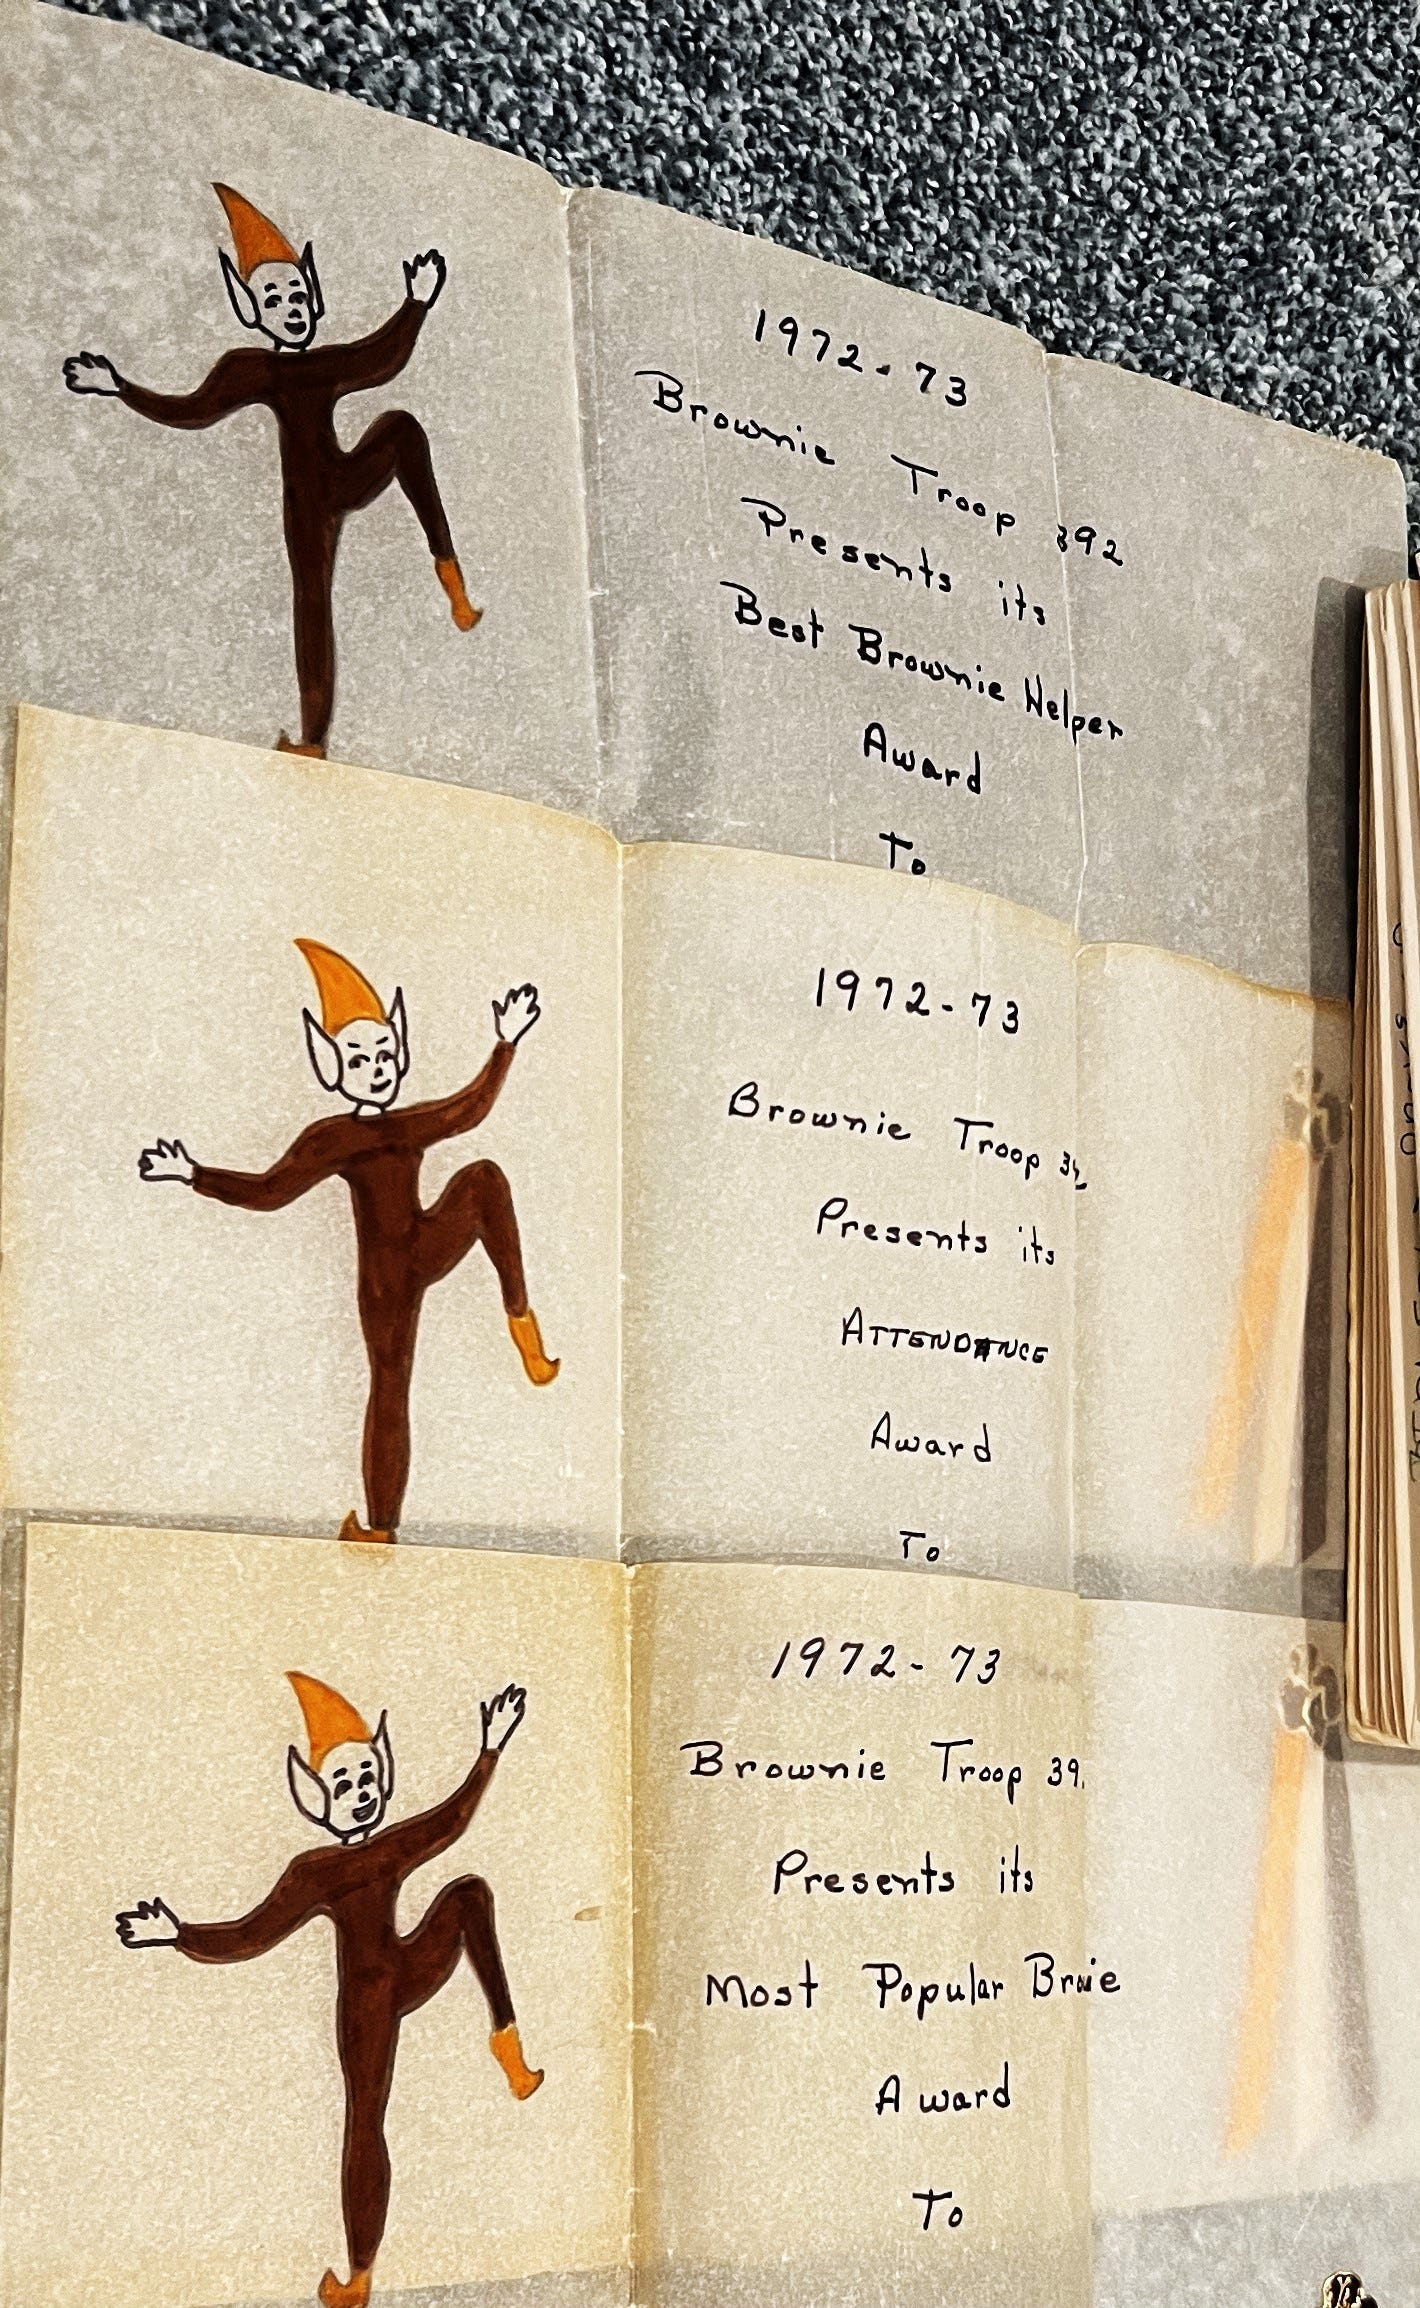 1972-73
Brownie Troop 392
Presents its
Best Brownie Helper
Award
To
1972-73
Brownie Troop
Presents its
ATTENDANCE
Award
To
1972-73
Brownie Troop 39
Presents its
Most Popular Brwie
Award
To